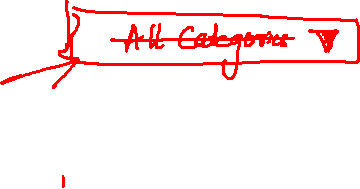 All Categories